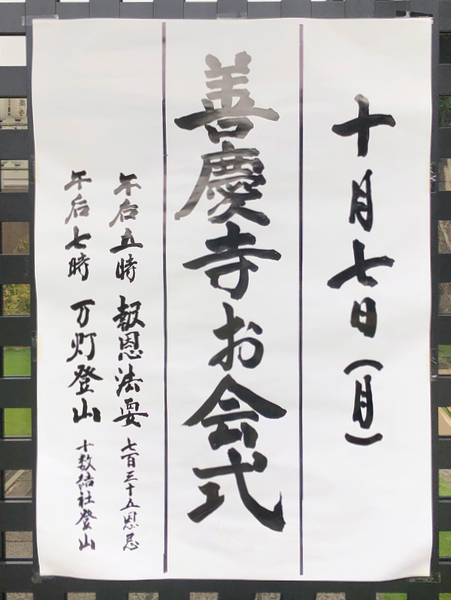 十月七日(月)
善慶寺お会式
午后五時 報恩法要 七百三十五恩忌
午后七時 万灯登山 十数結社登山